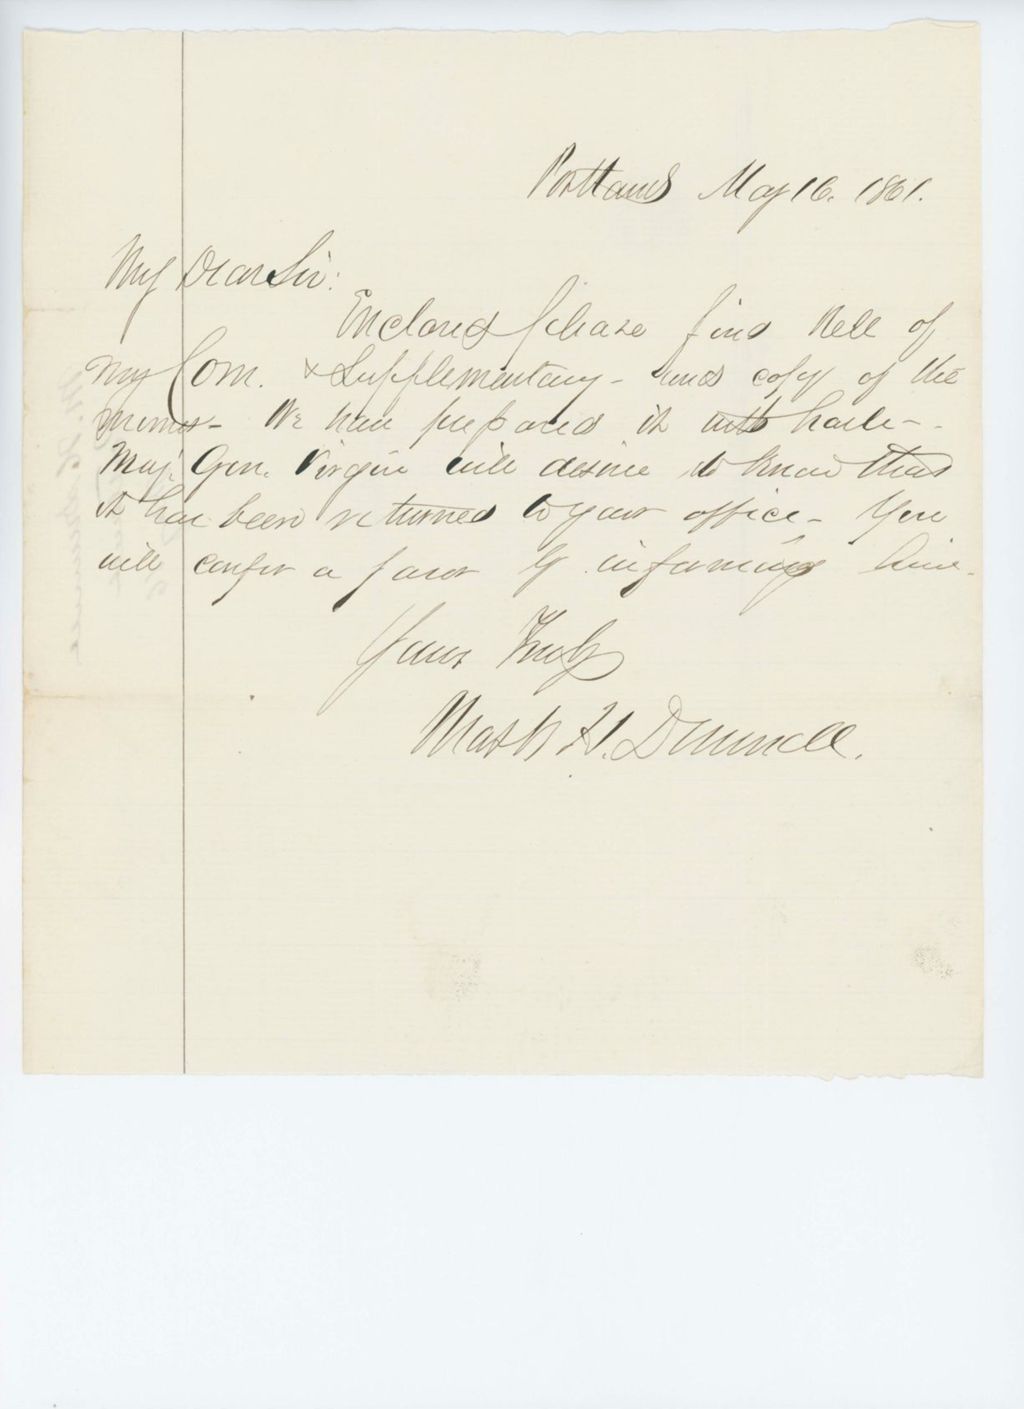 Portland May 16. 1861.
My Dear Sir:
Enclosed please find Roll of
my Com. & Supplementary - and copy of the
same - We have prepared it with haste -
Maj. Gen. Virgin will desire to know that
it has been returned to your office - You
will confer a favor by informing him.
Yours Truly
Mark H. Dunnell.